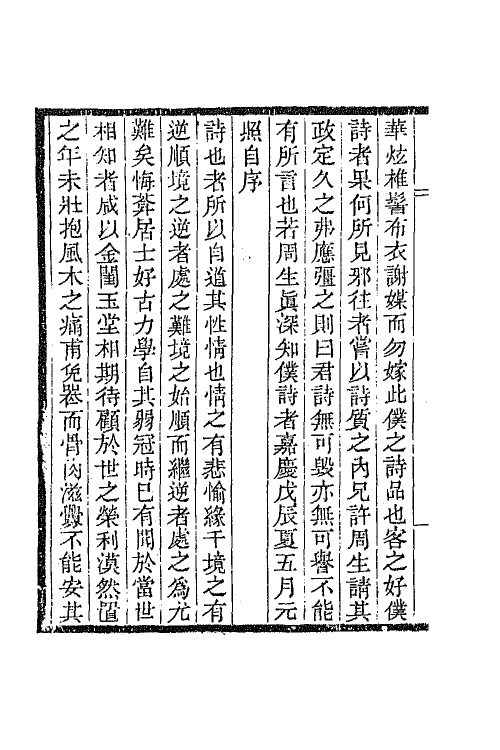 華炫椎髻布衣謝媒而勿嫁此僕之詩品也客之好僕
詩者果何所見邪往者嘗以詩質之內兄許周生請其
政定久之弗應彊之則曰君詩無可毀亦無可譽不能
有所言也若周生眞深知僕詩者嘉慶戊辰夏五月元
照自序
詩也者所以自道其性情也情之有悲愉緣乎境之有
逆順境之逆者處之難境之始順而繼逆者處之爲尤
難矣悔菴居士好古力學自其弱冠時已有聞於當世
相知者咸以金閨玉堂相期待顧於世之榮利漠然置
之年未壯抱風木之痛甫免喪而骨肉滋釁不能安其